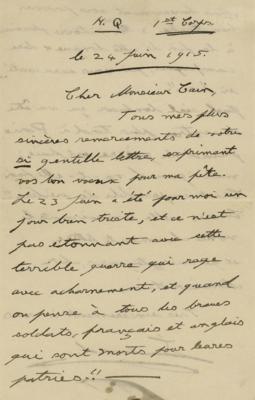 H.Q 1st Corps
le 24 juin 1915.
Cher Monsieur Cain,
Tous mes plus
sincères remerciements de votre
si gentille lettre, exprimant
vos bon voeux pour ma fête.
Le 23 juin a été pour moi un
jour bien triste, et ce n'est
pas étonnant avec cette
terrible guerre qui rage
avec acharnement, et quand
on pense à tous les braves
soldats, français et anglais
qui sont morts pour leurs
patries!!